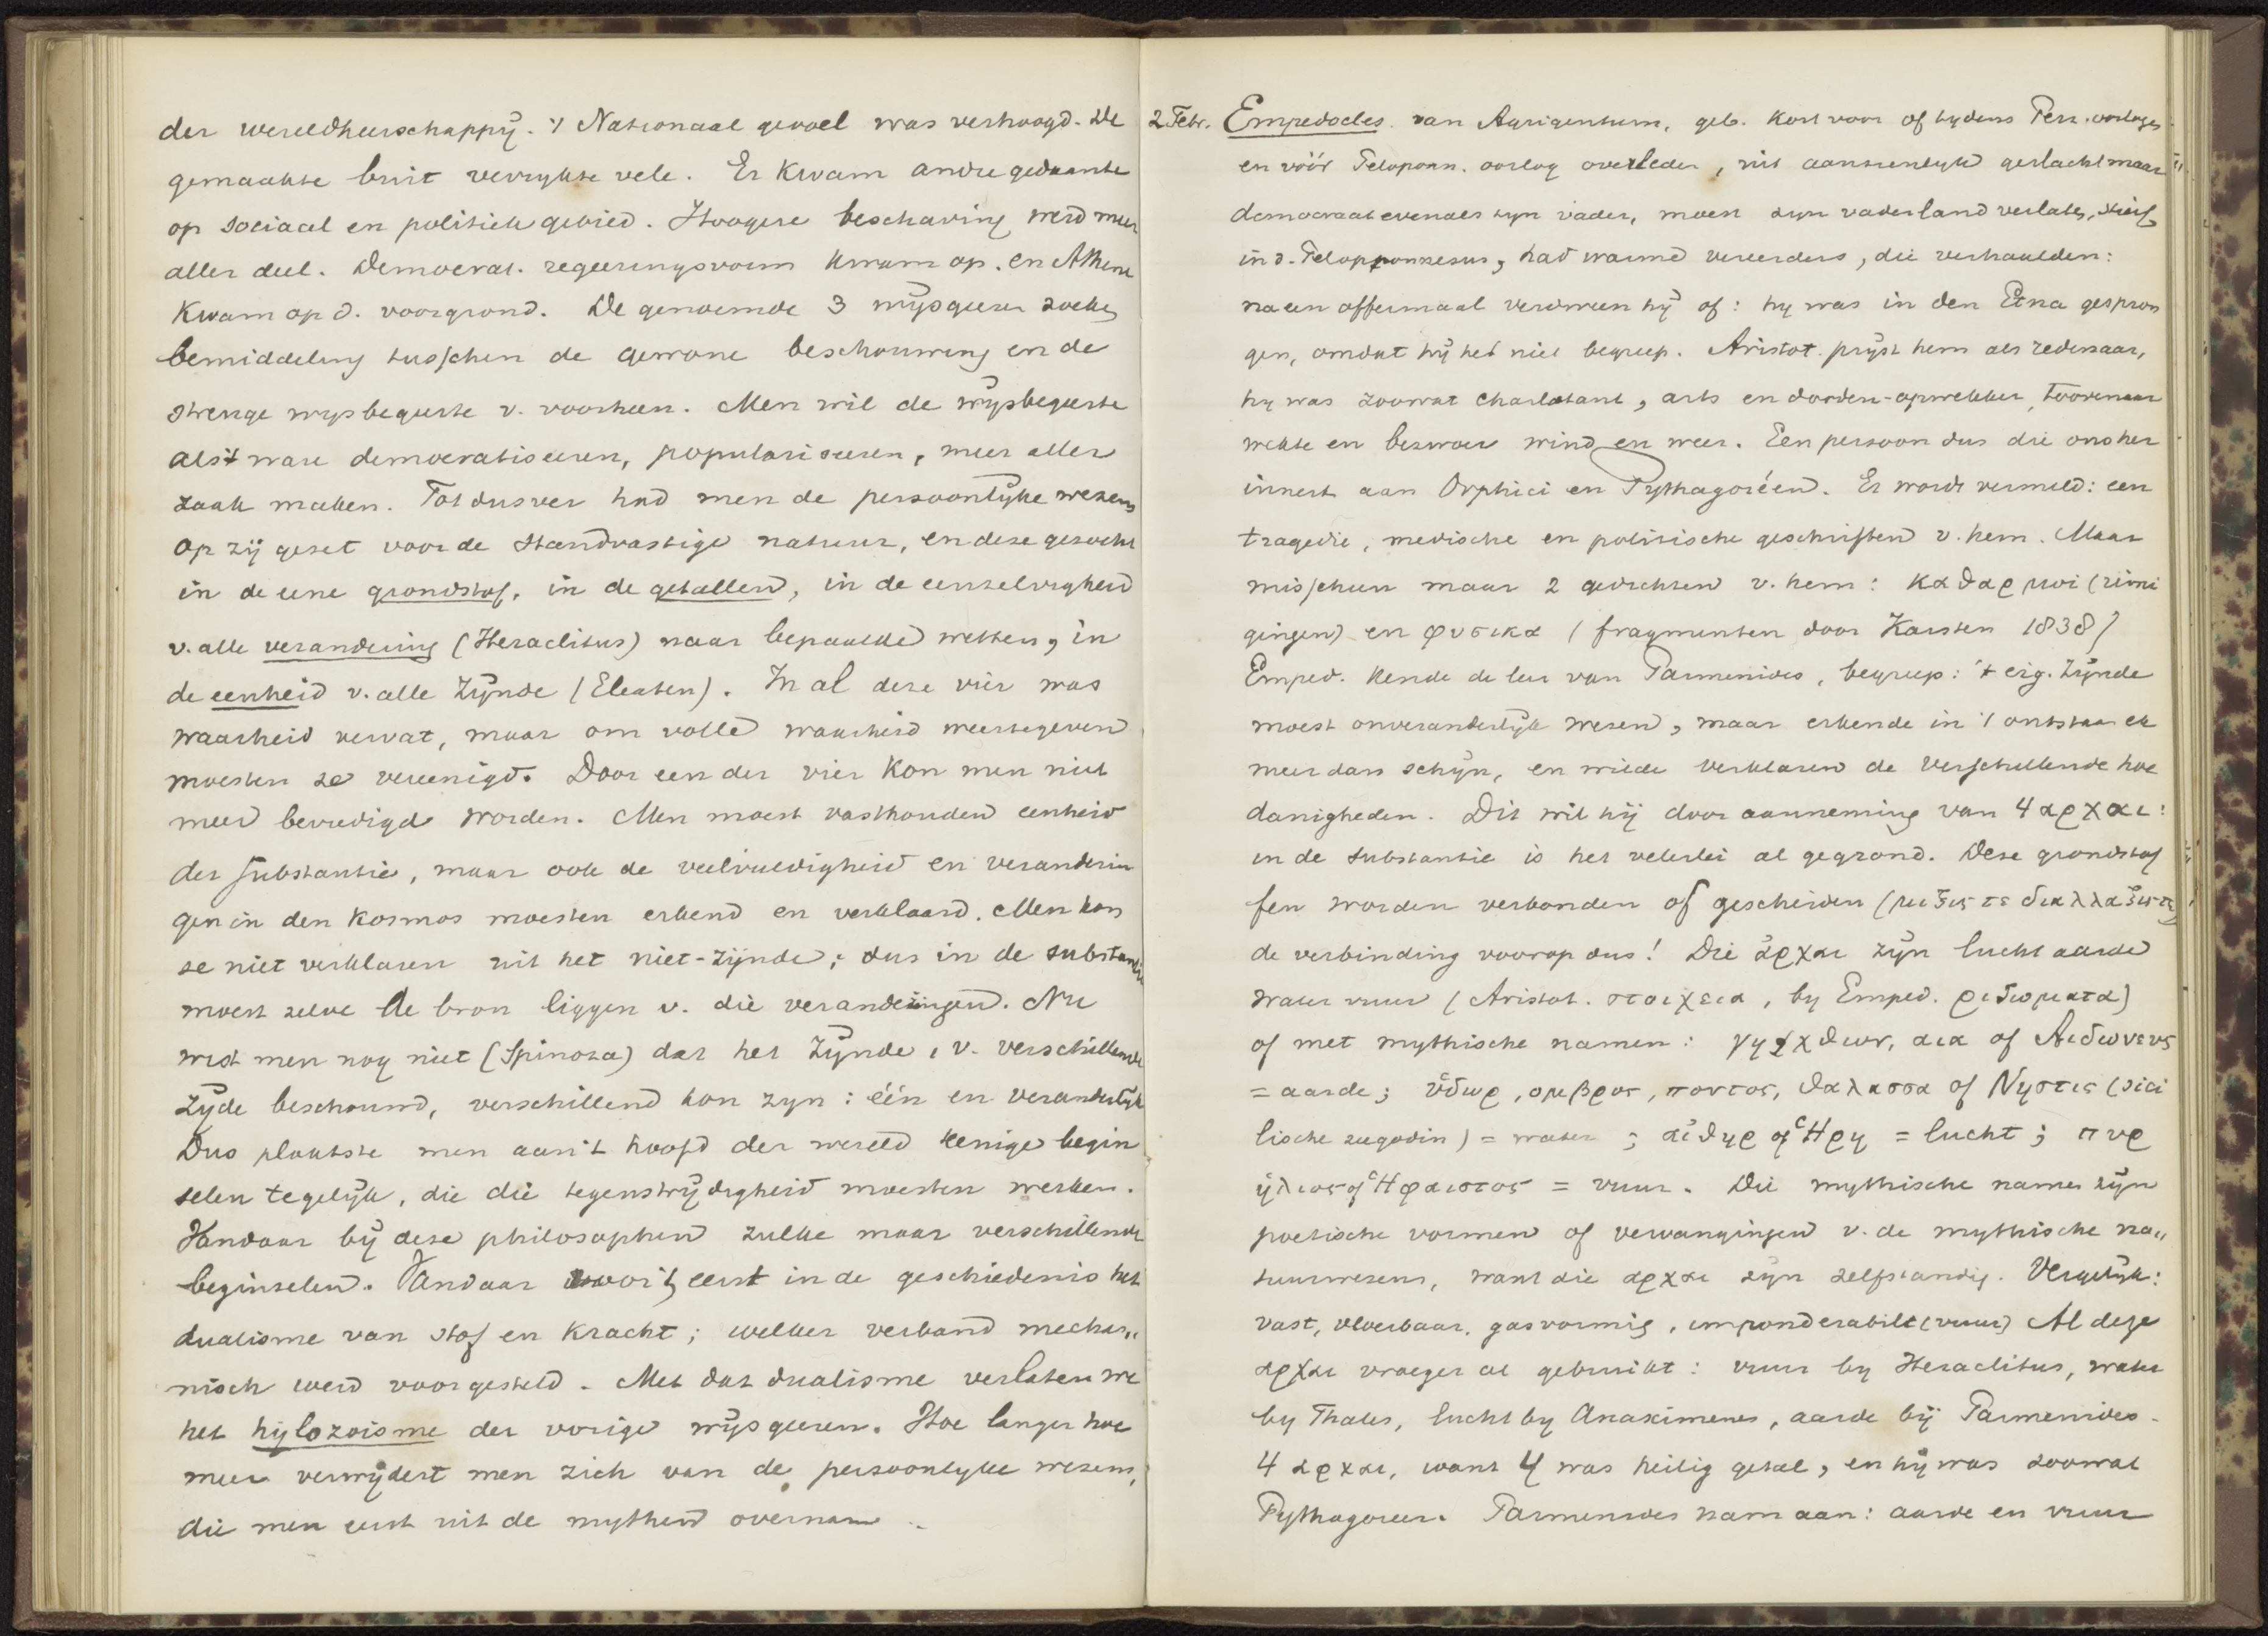 der wereldheerschappij. 't Nationaal gevoel was verhoogd. De
gemaakte buit verrykte vele. Er kwam andre gedaante
op sociaal en politiek gebied. Hoogere beschaving werd meer
aller deel. Democrat. regeeringsvorm kwam op. en Athene
kwam op d. voorgrond. De genoemde 3 wijsgeeren zoeken
bemiddeling tusschen de gewone beschouwing en de
strenge wysbegeerte v. voorheen. Men wil de wijsbegeerte
als 't ware democratiseeren, populariseeren, meer aller
zaak maken. Tot dusver had men de persoonlijke wezens
op zij gezet voor de standvastige natuur, en deze gezocht
in de eene grondstof, in de getallen, in de eenzelvigheid
v. alle verandering (Heraclitus) naar bepaalde wetten, in
de eenheid v. alle zijnde (Eleaten). In al deze vier was
waarheid vervat, maar om volle waarheid weertegeven
moesten ze vereenigd. Door een der vier kon men niet
meer bevredigd worden. Men moest vasthouden eenheid
der substantie, maar ook de veelvuldigheid en veranderin
gen in den kosmos moesten erkend en verklaard. Men kon
ze niet verklaren uit het niet-zijnde; dus in de substantie
moest zelve de bron liggen v. die veranderingen. Nu
wist men nog niet (Spinoza) dat het zijnde, v. verschillende
zijde beschouwd, verschillend kon zyn: één en veranderlijk
Dus plaatste men aan 't hoofd der wereld eenige begin
selen tegelijk, die die tegenstrijdigheid moesten werken.
Vandaar bij deze philosophen zulke maar verschillende
beginselen. Vandaar voor 't eerst in de geschiedenis het
dualisme van stof en kracht; welker verband mechan„
nisch werd voorgesteld. Met dat dualisme verlaten we
het hijlozoisme der vorige wijsgeeren. Hoe langer hoe
meer verwijdert men zich van de persoonlyke wezens,
die men eerst uit de mythen overnam ..
2 Febr. Empedocles van Agrigentum, geb. kort voor of tydens Perz. oorlogen
en vóór Peloponn. oorlog overleden, uit aanzienlyk geslacht maar
democraat evenals zyn vader, moest zyn vaderland verlaten, stierf
in d. Peloponnesus, had warme vereerders, die verhaalden:
na een offermaal verdween hij of: hy was in den Etna gespron
gen, omdat hij het niet begreep. Aristot. prijst hem als redenaar,
hy was zoowat charlatant, arts en dooden-opwekker, toovenaar
wekte en bezwoer wind en weer. Een persoon dus die ons her
innert aan Orphici en Pythagoréen. Er wordt vermeld: een
tragedie, medische en politische geschriften v. hem. Maar
misschien maar 2 gedichten v. hem: καθαρμοι (reini
gingen) en φυσικα (fragmenten door Karsten 1838)
Emped. kende de leer van Parmenides, begreep: 't eig. zijnde
moest onveranderlijk wezen, maar erkende in 't ontstaan ek
meer dan schijn, en wilde verklaren de verschillende hoe
danigheden. Dit wil hij door aanneming van 4 αρχαι:
in de substantie is het velerlei al gegrond. Deze grondstof
fen worden verbonden of gescheiden (μιξις τε διαλλαξις τε)
de verbinding voorop dus! Die ἀρχαι zijn lucht aarde
water vuur (Aristot. στοιχεια, by Emped. ριζωματα)
of met mythische namen: γη χθων, αια of Αιδωνευς
= aarde; ὕδωρ, ομβρος, ποντος, θαλασσα of Νηστις (sici
lische zeegodin) = water; αἰθηρ of Ἡρη = lucht; πυρ
ἡλιος of Ἡφαιστος = vuur. Die mythische namen zijn
poetische vormen of vervangingen v. de mythische na„
tuurwezens, want die αρχαι zijn zelfstandig. Vergelijk:
vast, vloeibaar, gasvormig, imponderabile (vuur) Al deze
αρχαι vroeger al gebruikt: vuur by Heraclitus, water
by Thales, lucht by Anaximenes, aarde bij Parmenides.
4 αρχαι, want 4 was heilig getal, en hij was zoowat
Pythagoreer. Parmenides nam aan: aarde en vuur